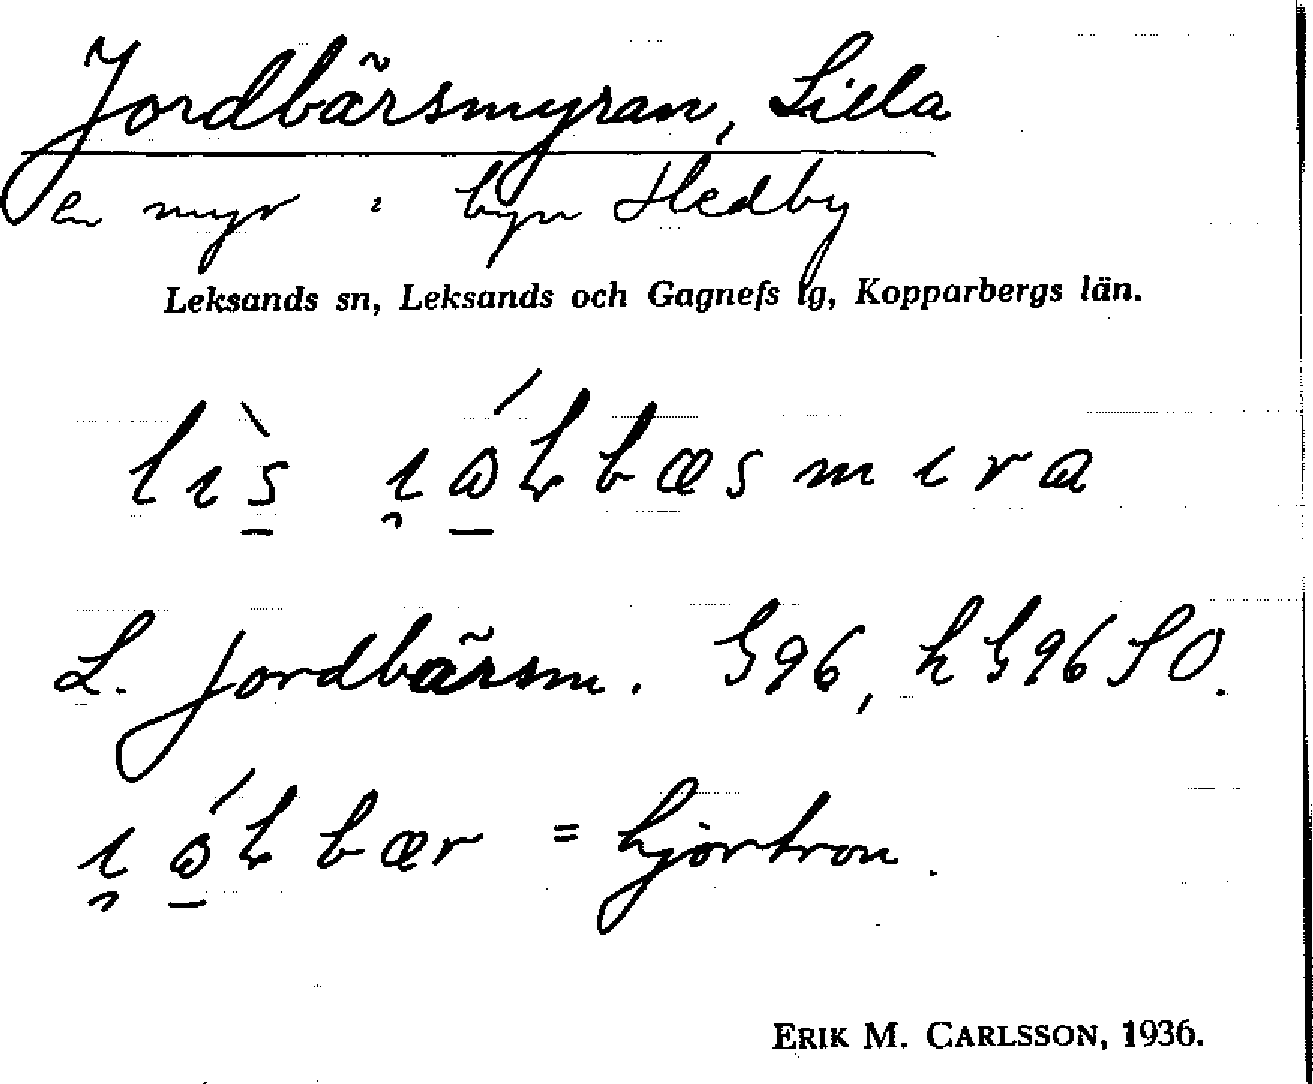 Jordbärsmyran, Lilla
en myr i byn Hedby
Leksands sn, Leksands och Gagnefs lg, Kopparbergs län.
L. Jordbärsm. G96, hG96SO.
= hjortron.
ERIK M. CARLSSON, 1936.